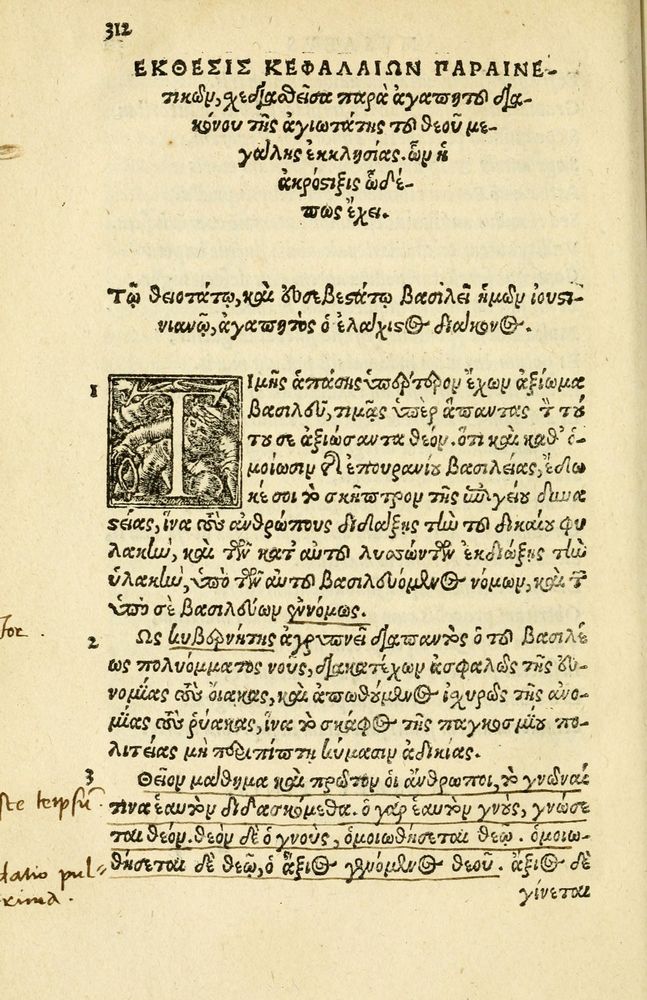 312
ΕΚΘΕΣΙΣ ΚΕΦΑΛΑΙΩΝ ΠΑΡΑΙΝΕ-
τικῶν, σχεδιασθεῖσα παρὰ ἀγαπητοῦ δια-
κόνου τῆς ἁγιωτάτης τοῦ θεοῦ με-
γάλης ἐκκλησίας. ὧν ἡ
ἀκρόστιξις ὧδέ-
πως ἔχει.
Τῷ θειοτάτῳ, καὶ εὐσεβεστάτῳ βασιλεῖ ἡμῶν ἰουστι-
νιανῷ, ἀγαπητὸς ὁ ἐλάχιστος διάκονος.
1 Τιμῆς ἁπάσης ὑπέρτερον ἔχων ἀξίωμα
βασιλεῦ, τίμα ὑπὲρ ἅπαντας τὸν τού
του σε ἀξιώσαντα θεόν. ὅτι καὶ καθ' ὁ-
μοίωσιν τῆς ἐπουρανίου βασιλείας, ἔδω
κέ σοι τὸ σκῆπτρον τῆς ἐπιγείου δυνα
στείας, ἵνα τοὺς ἀνθρώπους διδάξῃς τὴν τοῦ δικαίου φυ
λακὴν, καὶ τῶν κατ' αὐτοῦ λυσσώντων ἐκδιώξῃς τὴν
ὑλακὴν, ὑπὸ τῶν αὐτοῦ βασιλευόμενος νόμων, καὶ τῶν
ὑπὸ σὲ βασιλεύων ἐννόμως.
2 Ως κυβερνήτης ἀγρυπνεῖ διαπαντὸς ὁ τοῦ βασιλέ
ως πολυόμματος νοῦς, διακατέχων ἀσφαλῶς τῆς εὐ-
νομίας τοὺς οἴακας, καὶ ἀπωθούμενος ἰσχυρῶς τῆς ἀνο-
μίας τοὺς ῥύακας, ἵνα τὸ σκάφος τῆς παγκοσμίου πο-
λιτείας μὴ περιπίπτῃ κύμασιν ἀδικίας.
3 Θεῖον μάθημα καὶ πρῶτον οἱ ἄνθρωποι, τὸ γνῶναί
τινα ἑαυτὸν διδασκόμεθα. ὁ γὰρ ἑαυτὸν γνοὺς, γνώσε
ται θεόν. θεὸν δὲ ὁ γνοὺς, ὁμοιωθήσεται θεῷ. ὁμοιω-
θήσεται δὲ θεῷ, ὁ ἄξιος γενόμενος θεοῦ. ἄξιος δὲ
γίνεται